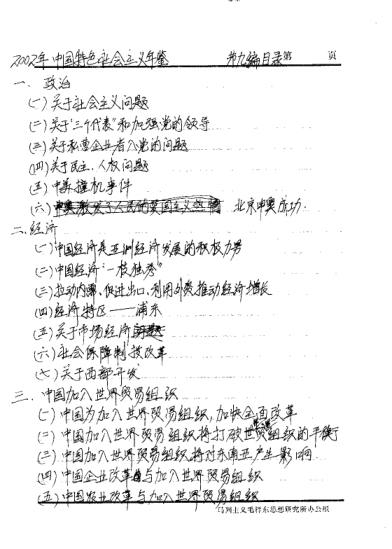 2002年中国特色社会主义年鉴 第九编目录第 页
一、政治
(一)关于社会主义问题
(二)关于"三个代表"和加强党的领导
(三)关于私营企业者入党的问题
(四)关于民主、人权问题
(五)中美撞机事件
(六) 北京申奥成功
二、经济
(一)中国经济是亚洲经济发展的积极力量
(二)中国经济"一枝独秀"
(三)拉动内需、促进出口、利用外资推动经济增长
(四)经济特区——浦东
(五)关于市场经济
(六)社会保障制度改革
(七)关于西部开发
三、中国加入世界贸易组织
(一)中国为加入世界贸易组织,加快全面改革
(二)中国加入世界贸易组织将打破世贸组织的平衡
(三)中国加入世界贸易组织将对东南亚产生影响
(四)中国企业改革与加入世界贸易组织
(五)中国农业改革与加入世界贸易组织
马列主义毛泽东思想研究所办公稿